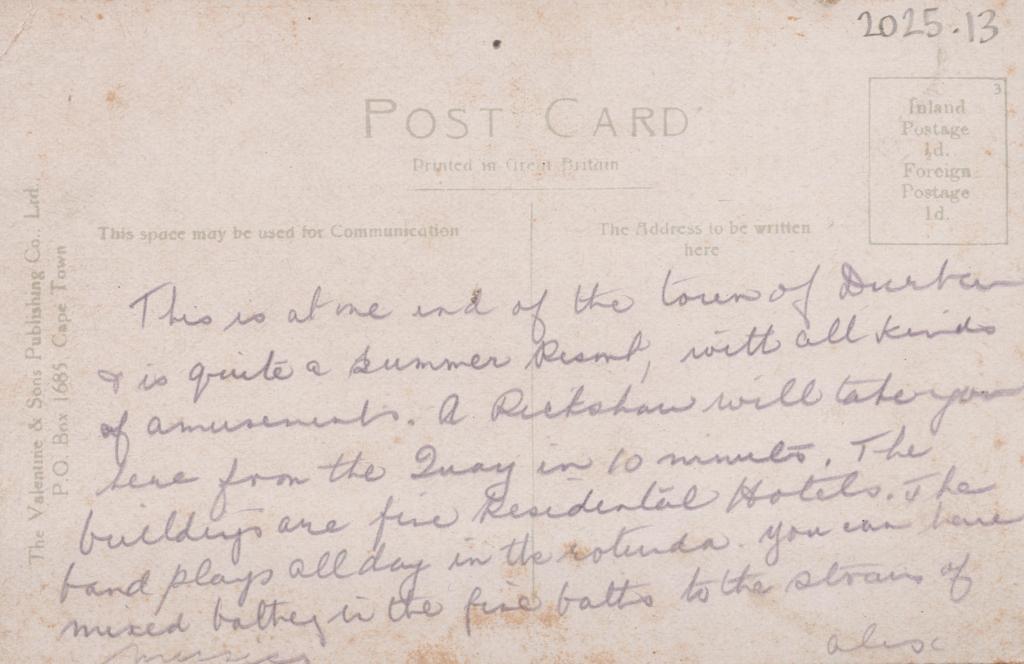 2025.13
POST CARD
Printed in Great Britain
3
Inland
Postage
½d.
Foreign
Postage
1d.
This space may be used for Communication
The Address to be written
here
The Valentine & Sons Publishing Co., Ltd.
P.O. Box 1685 Cape Town
This is at one end of the town of Durban
& is quite a Summer Resort, with all kinds
of amusements. A Rickshaw will take you
here from the Quay in 10 minutes. The
buildings are fine Residential Hotels. The
band plays all day in the rotunda. you can have
mixed bathing in the fine baths to the strains of
music
alex